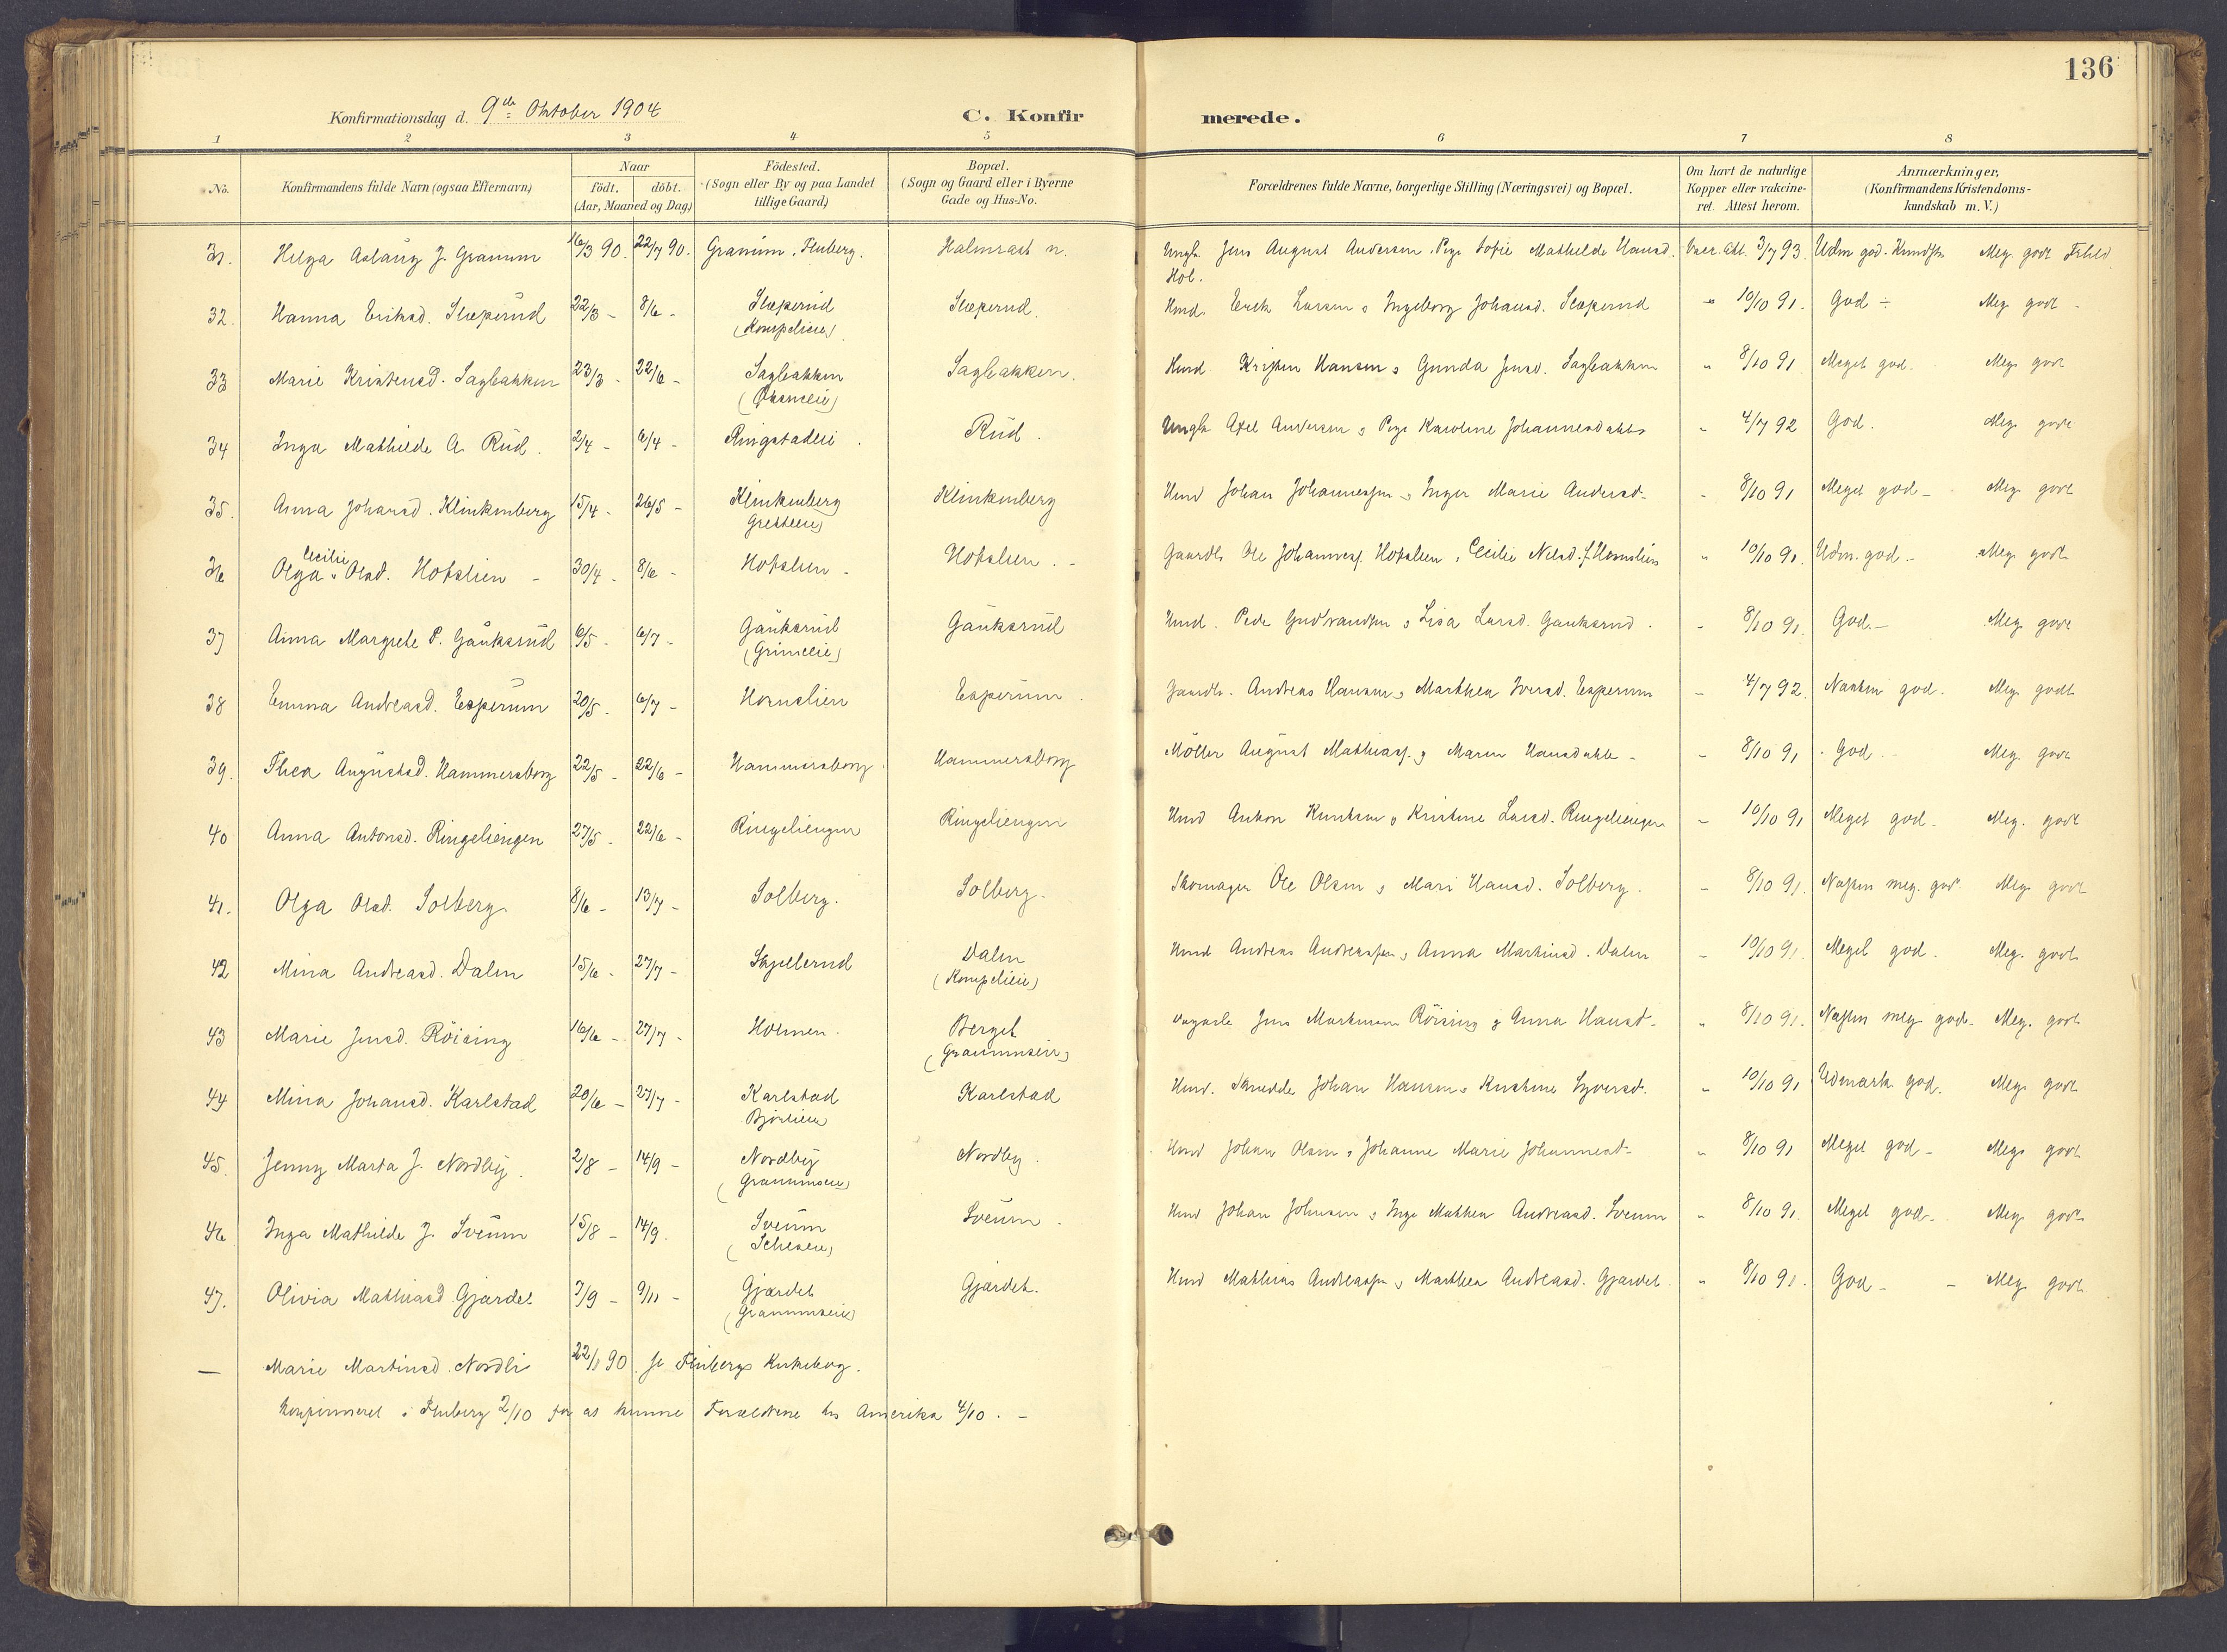 136
Konfirmationsdag d. 9de Oktober 1904
C. Konfirmerede.
1 2 3 4 5 6 7 8
No. Konfirmandens fulde Navn (ogsaa Efternavn) Naar födt. döbt. (Aar, Maaned og Dag) Födested. (Sogn eller By og paa Landet tillige Gaard) Bopæl. (Sogn og Gaard eller i Byerne Gade og Hus-No. Forældrenes fulde Navne, borgerlige Stilling (Næringsvei) og Bopæl. Om havt de naturlige Kopper eller vakcineret. Attest herom. Anmærkninger, (Konfirmandens Kristendomskundskab m. V.)
31. Helga Aslaug J. Granum 16/3 90. 22/7 90. Granum, Fluberg. Halmrast n. Ungk. Jens August Andersen, Pige Sofie Mathilde Hansd. Hol. Vacc. Att. 3/7 93. Udm god. Kundsk. Meg. godt Forhld
32. Hanna Eriksd. Slæperud 22/3 - 8/6 - Slæperud Slæperud. Hmd. Erik Larsen & Ingeborg Johansd. Slæperud " 10/10 91. God - Meg godt -
33 Marie Kristensd. Sagbakken 23/3 - 22/6 - Sagbakken Sagbakken. Hmd Kristen Hansen & Gunda Jensd. Sagbakken " 8/10 91 Meget god. Meg. godt
34 Inga Mathilde A. Rud. 2/4 - 6/4 - Ringstadeie. Rud. Ungk Axel Andersen & Pige Karoline Johannesdatter " 4/7 92 God. Meg. godt
35. Anna Johansd. Klinkenberg 15/4 - 26/5 - Klinkenberg Klinkenberg Hmd Johan Johannessen & Inger Marie Andersd- " 8/10 91 Meget god - Meg. godt
36 Olga Cecilie Olsd. Hofslien - 30/4 - 8/6 - Hofslien - Hofslien. - Gaardb. Ole Johanness. Hofslien, Cecilie Nilsd. " 10/10 91. Udm. god - Meg. godt
37 Anna Margrete P. Gaukerud 6/5 - 6/7 - Gaukerud (Grimeeie) Gaukerud Hmd. Peder Gudbrandsen & Lisa Larsd. Gaukerud. - 8/10 91. God. - Meg godt
38 Emma Andreasd. Esperum 20/5 - 6/7 - Hornslien Esperum. Gaardb. Andreas Hansen & Marthea Iversd. Esperum - 4/7 92. Næsten god. Meg. godt
39. Thea Augustsd. Hammersborg 22/5 - 22/6 - Hammersborg Hammersborg Möller August Mathiass. & Maren Hansdatter - - 8/10 91 God. - Meg. godt
40 Anna Antonsd. Ringeliengen 27/5 - 22/6 - Ringeliengen Ringeliengen Hmd Anton Knutsen & Kristine Larsd. Ringeliengen - 10/10 91 Meget god - Meg. godt
41. Olga Olsd. Solberg. 8/6 - 13/7 - Solberg. Solberg. Skomager Ole Olsen & Mari Hansd. Solberg. - 8/10 91. Næsten meg. god. Meg. godt
42 Mina Andreasd. Dalen 15/6 - 27/7 - Skjellerud Dalen Hmd Andreas Andreassen & Anna Martinsd. Dalen - 10/10 91. Meget god. Meg. godt
43 Marie Jensd. Röising 16/6 - 27/7 - Holmen. Berget (Granumseie) Jens Röising & Anna Hansd- " 8/10 91. Næsten meg god - Meg. godt
44 Mina Johansd. Karlstad 20/6 - 27/7 - Karlstad Karlstad Hmd. Johan Hansen & Kristine Syversd. " 10/10 91 Udmærk. god. Meg. godt
45. Jenny Marta J. Nordby. 2/8 - 14/9 - Nordby (Granumseie) Nordby. Hmd Johan Olsen & Johanne Marie Johannesd- " 8/10 91 Meget god - Meg. godt
46 Inga Mathilde J. Sveum 15/8 - 14/9. Sveum Sveum. Hmd Johan Johnsen & Inge Mathea Andreasd. Sveum " 8/10 91. Meget god - Meg. godt
47. Olivia Mathiasd Gjærdet 7/9 - 9/11 - Gjærdet (Granumseie) Gjærdet. Hmd Mathias Andreassen & Marthea Andreasd. Gjærdet. " 8/10 91. God - - Meg. godt
— Marie Martinsd. Nordli 22/1 90 se Flubergs Kirkebog.
Konfirmeret i Fluberg 2/10 for at kunne Forældrene Amerika 4/10. -